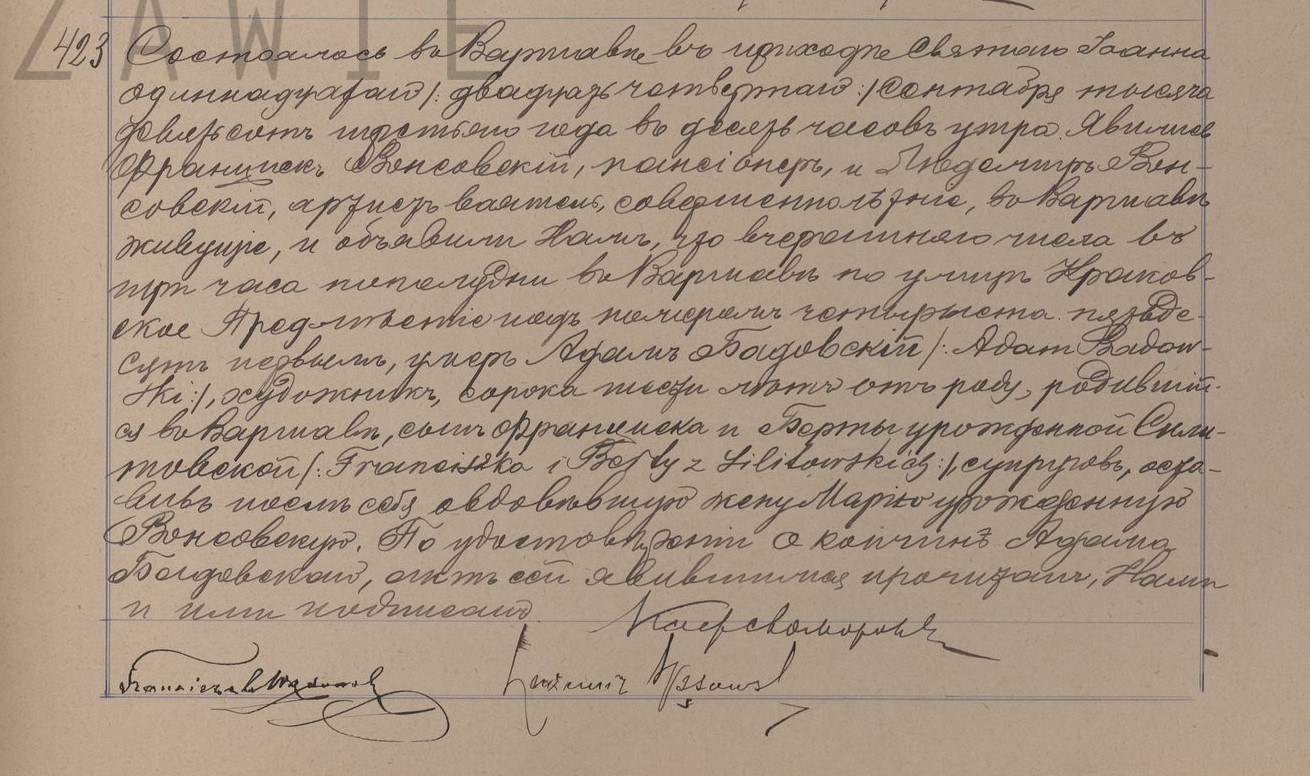 ZAWIE
423 Состоялось въ Варшавѣ въ приходѣ Святаго Іоанна
одиннадцатаго /: двадцать четвертаго :/ Сентября тысяча
девятьсотъ года въ десять часовъ утра. Явились
Францискъ Вонсовскій, пансіонеръ, и Людомиръ Вон-
совскій, артистъ ваятель, совершеннолѣтніе, въ Варшавѣ
живущіе, и объявили Намъ, что вчерашняго числа въ
три часа пополудни въ Варшавѣ по улицѣ Краков-
ское Предмѣстіе подъ номеромъ четыреста пятьде-
сятъ первымъ, умеръ Адамъ Бадовскій /: Adam Badow-
ski :/, художникъ, сорока шести лѣтъ отъ роду, родившій-
ся въ Варшавѣ, сынъ Франциска и Берты урожденной Сили-
товской /: Franciszka i Berty z Silitowskich :/, супруговъ, оста-
вивъ послѣ себя овдовѣвшую жену Марію урожденную
Вонсовскую. По удостовѣреніи о кончинѣ Адама
Бадовскаго, актъ сей явившимся прочитанъ, Нами
и ими подписанъ
Franciszek